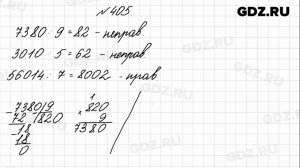 GDZ.RU
№405
7380 : 9 = 82 - неправ.
3010 : 5 = 62 - неправ.
56014 : 7 = 8002 - прав
-7380|9
72 |820
-18
18
0
1
×820
9
7380
GDZ.RU